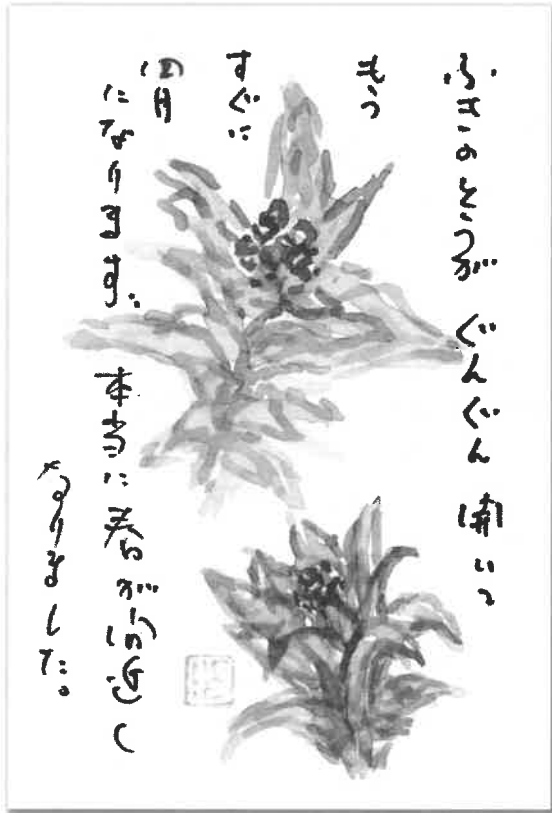 ふきのとうが ぐんぐん 開いて
もう
すぐに
四月
になります。本当に春が間近く
なりました。